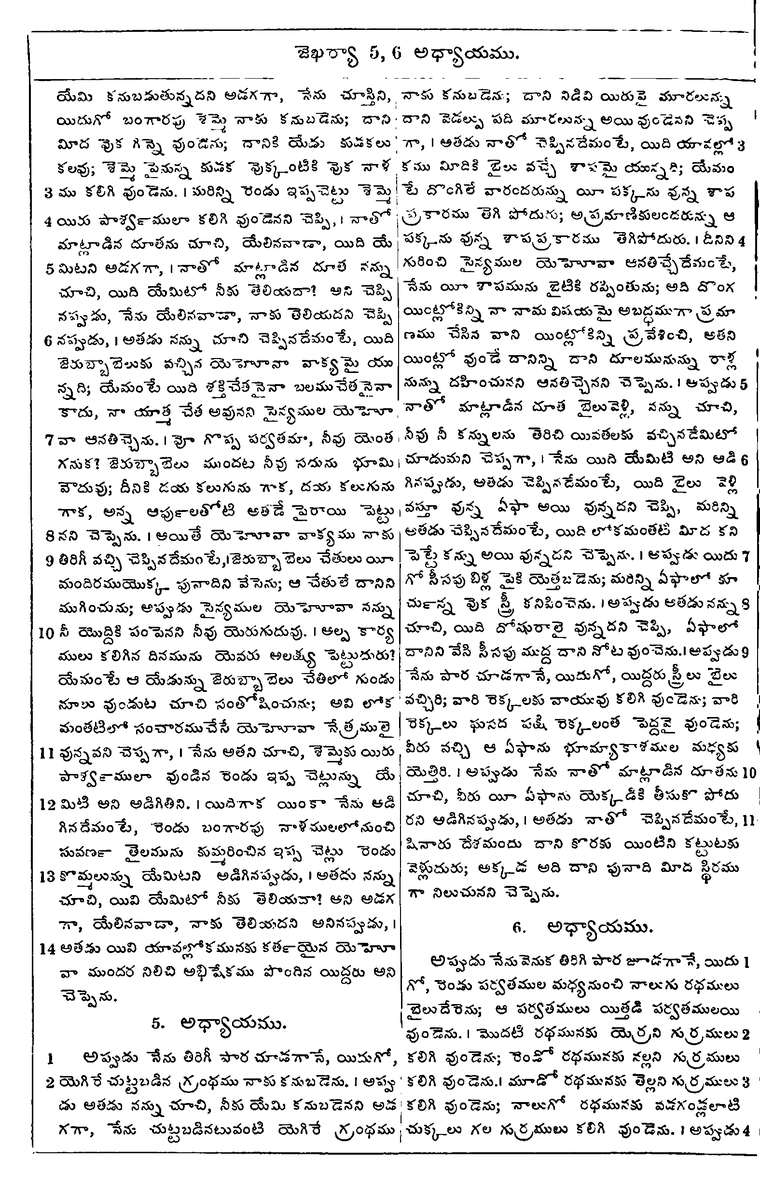 జెఖర్యా 5, 6 అధ్యాయము.
యేమి కనుబడుతున్నదని అడగగా, నేను చూస్తిని,
యిదుగో బంగారపు శెమ్మె నాకు కనుబడెను; దాని
మీద వుక గిన్నె వుండెను; దానికి యేడు కుడకలు
కలవు; శెమ్మె పైనున్న కుడక వుక్కంటికి వుక నాళ
3 ము కలిగి వుండెను. । మరిన్ని రెండు ఇప్పచెట్లు శెమ్మె
4 యిరు పార్శ్వములా కలిగి వుండెనని చెప్పి, । నాతో
మాట్లాడిన దూతను చూచి, యేలినవాడా, యిది యే
5 మిటని అడగగా, । నాతో మాట్లాడిన దూత నన్ను
చూచి, యిది యేమిటో నీకు తెలియదా? అని చెప్పి
నప్పుడు, నేను యేలినవాడా, నాకు తెలియదని చెప్పి
6 నప్పుడు, । అతడు నన్ను చూచి చెప్పినదేమంటే, యిది
జెరుబ్బాబెలుకు వచ్చిన యెహోవా వాక్యమై యు
న్నది; యేమంటే యిది శక్తిచేతనైనా బలముచేతనైనా
కాదు, నా యాత్మ చేత అవునని సైన్యముల యెహో
7 వా ఆనతిచ్చెను. । వో గొప్ప పర్వతమా, నీవు యెంత
గనుక? జెరుబ్బాబెలు ముందట నీవు సదును భూమి
వౌదువు; దీనికి దయ కలుగును గాక, దయ కలుగును
గాక, అన్న ఆర్పులతోటి అతడే పైరాయి పెట్టు
8 నని చెప్పెను. । అయితే యెహోవా వాక్యము నాకు
9 తిరిగీ వచ్చి చెప్పినదేమంటే,।జెరుబ్బాబెలు చేతులు యీ
మందిరముయొక్క పునాదిని వేసెను; ఆ చేతులే దానిని
ముగించును; అప్పుడు సైన్యముల యెహోవా నన్ను
10 నీ యొద్దికి పంపెనని నీవు యెరుగుదువు. । అల్ప కార్య
ములు కలిగిన దినమును యెవరు అలక్ష్య పెట్టుదురు?
యేమంటే ఆ యేడున్ను జెరుబ్బాబెలు చేతిలో గుండు
నూలు వుండుట చూచి సంతోషించును; అవి లోక
మంతటిలో సంచారముచేసే యెహోవా నేత్రములై
11 వున్నవని చెప్పగా, । నేను అతని చూచి, శెమ్మెకు యిరు
పార్శ్వములా వుండిన రెండు ఇప్ప చెట్లున్ను యే
12 మిటి అని అడిగితిని. । యిదిగాక యింకా నేను అడి
గినదేమంటే, రెండు బంగారపు నాళములలోనుంచి
సువర్ణ తైలమును కుమ్మరించిన ఇప్ప చెట్లు రెండు
13 కొమ్మలున్ను యేమిటని అడిగినప్పుడు, । అతడు నన్ను
చూచి, యివి యేమిటో నీకు తెలియదా? అని అడగ
గా, యేలినవాడా, నాకు తెలియదని అనినప్పుడు, ।
14 అతడు యివి యావల్లోకమునకు కర్తయైన యెహో
వా ముందర నిలిచి అభిషేకము పొందిన యిద్దరు అని
చెప్పెను.
5. అధ్యాయము.
1 అప్పుడు నేను తిరిగీ పార చూడగానే, యిదుగో,
2 యెగిరే చుట్టబడిన గ్రంథము నాకు కనుబడెను. । అప్పు
డు అతడు నన్ను చూచి, నీకు యేమి కనుబడెనని అడ
గగా, నేను చుట్టబడినటువంటి యెగిరే గ్రంథము
నాకు కనుబడెను; దాని నిడివి యిరువై మూరలున్ను
దాని వెడల్పు పది మూరలున్ను అయి వుండెనని చెప్ప
గా, । అతడు నాతో చెప్పినదేమంటే, యిది యావల్లో 3
కము మీదికి బైలు వచ్చే శాపమై యున్నది; యేమం
టే దొంగిలే వారందరున్ను యీ పక్కను వున్న శాప
ప్రకారము తెగి పోదురు; అప్రమాణికులందరున్ను ఆ
పక్కను వున్న శాపప్రకారము తెగిపోదురు. । దీనిని 4
గురించి సైన్యముల యెహోవా ఆనతిచ్చేదేమంటే,
నేను యీ శాపమును బైటికి రప్పింతును; అది దొంగ
యింట్లోకిన్ని నా నామ విషయమై అబద్ధముగా ప్రమా
ణము చేసిన వాని యింట్లోకిన్ని ప్రవేశించి, అతని
యింట్లో వుండే దానిన్ని దాని దూలమునున్ను రాళ్ల
నున్ను దహించునని ఆనతిచ్చెనని చెప్పెను. । అప్పుడు 5
నాతో మాట్లాడిన దూత బైలువెళ్లి, నన్ను చూచి,
నీవు నీ కన్నులను తెరిచి యివతలకు వచ్చినదేమిటో
చూడుమని చెప్పగా, । నేను యిది యేమిటి అని అడి 6
గినప్పుడు, అతడు చెప్పినదేమంటే, యిది బైలు వెళ్లి
వస్తూ వున్న ఏఫా అయి వున్నదని చెప్పి, మరిన్ని
అతడు చెప్పినదేమంటే, యిది లోకమంతటి మీద కని
పెట్టే కన్ను అయి వున్నదని చెప్పెను. । అప్పుడు యిదు 7
గో సీసపు బిళ్ల పైకి యెత్తబడెను; మరిన్ని ఏఫాలో కూ
చున్న వుక స్త్రీ కనిపించెను. । అప్పుడు అతడు నన్ను 8
చూచి, యిది దోషురాలై వున్నదని చెప్పి, ఏఫాలో
దానిని వేసి సీసపు ముద్ద దాని నోట వుంచెను.।అప్పుడు 9
నేను పార చూడగానే, యిదుగో, యిద్దరు స్త్రీలు బైలు
వచ్చిరి; వారి రెక్కలకు వాయువు కలిగి వుండెను; వారి
రెక్కలు ఘుసద పక్షి రెక్కలంత పెద్దవై వుండెను;
వీరు వచ్చి ఆ ఏఫాను భూమ్యాకాశముల మధ్యకు
యెత్తిరి. । అప్పుడు నేను నాతో మాట్లాడిన దూతను 10
చూచి, వీరు యీ ఏఫాను యెక్కడికి తీసుకొ పోదు
రని అడిగినప్పుడు, । అతడు నాతో చెప్పినదేమంటే, 11
షినారు దేశమందు దాని కొరకు యింటిని కట్టుటకు
వెళ్లుదురు; అక్కడ అది దాని పునాది మీద స్థిరము
గా నిలుచునని చెప్పెను.
6. అధ్యాయము.
అప్పుడు నేను వెనుక తిరిగి పార జూడగానే, యిదు 1
గో, రెండు పర్వతముల మధ్యనుంచి నాలుగు రథములు
బైలుదేరెను; ఆ పర్వతములు యిత్తడి పర్వతములయి
వుండెను. । మొదటి రథమునకు యెర్రని గుర్రములు 2
కలిగి వుండెను; రెండో రథమునకు నల్లని గుర్రములు
కలిగి వుండెను.। మూడో రథమునకు తెల్లని గుర్రములు 3
కలిగి వుండెను; నాలుగో రథమునకు వడగండ్లలాటి
చుక్కలు గల గుర్రములు కలిగి వుండెను. । అప్పుడు 4